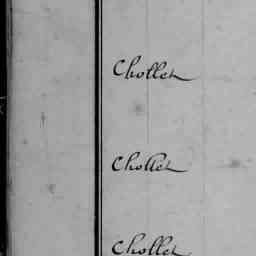 Chollet
Chollet
Chollet